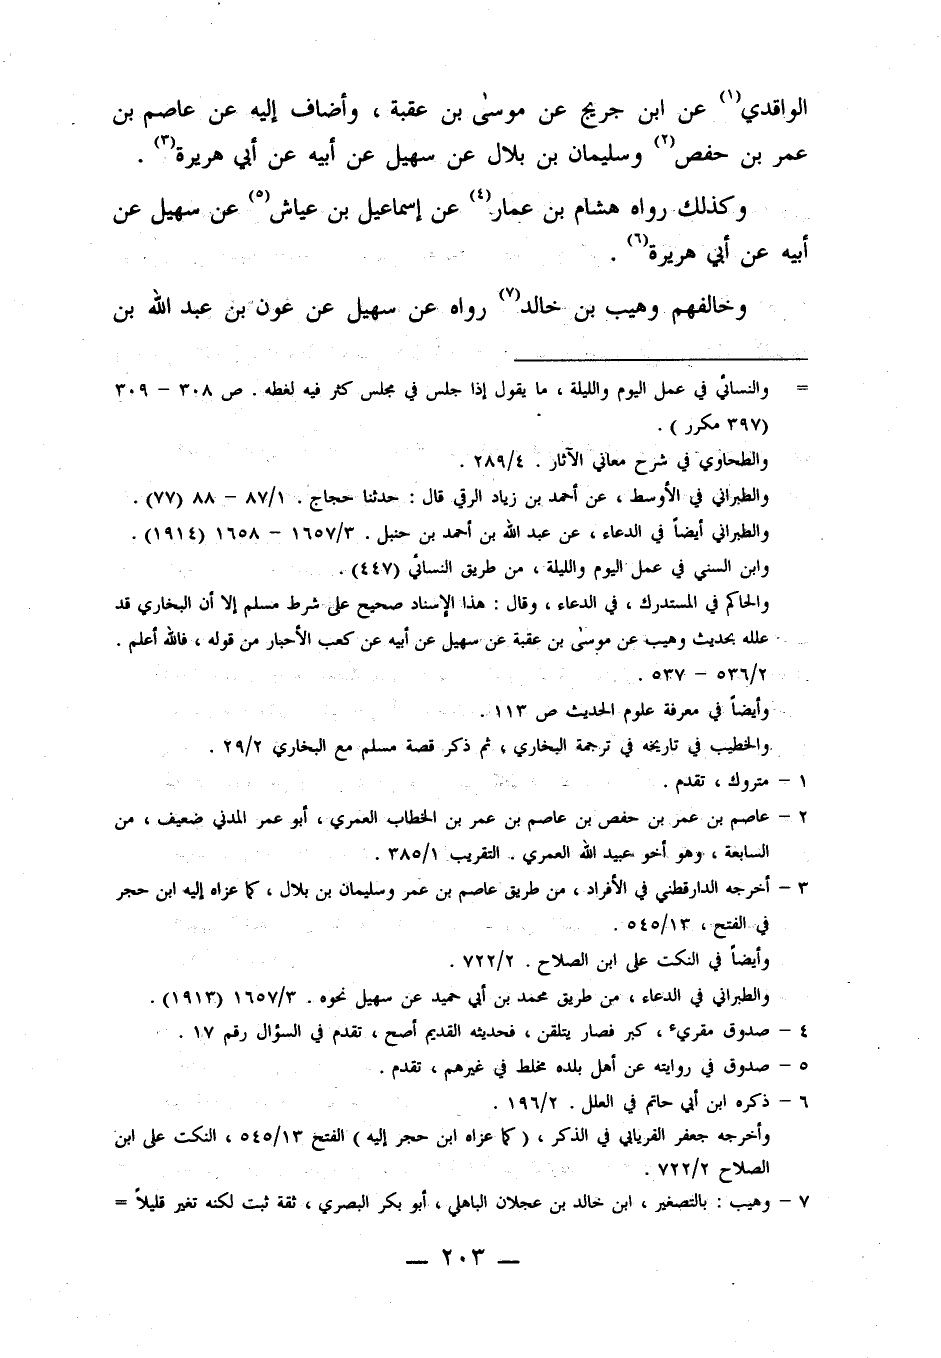 الواقدي(١) عن ابن جريج عن موسىٰ بن عقبة ، وأضاف إليه عن عاصم بن
عمر بن حفص(٢) وسليمان بن بلال عن سهيل عن أبيه عن أبي هريرة(٣) .
وكذلك رواه هشام بن عمار(٤) عن إسماعيل بن عياش(٥) عن سهيل عن
أبيه عن أبي هريرة(٦) .
وخالفهم وهيب بن خالد(٧) رواه عن سهيل عن عون بن عبد الله بن
= والنسائي في عمل اليوم والليلة ، ما يقول إذا جلس في مجلس كثر فيه لغطه . ص ٣٠٨ – ٣٠٩
(٣٩٧ مكرر ) .
والطحاوي في شرح معاني الآثار . ٢٨٩/٤ .
والطبراني في الأوسط ، عن أحمد بن زياد الرقي قال : حدثنا حجاج . ٨٧/١ – ٨٨ (٧٧) .
والطبراني أيضاً في الدعاء ، عن عبد الله بن أحمد بن حنبل . ١٦٥٧/٣ – ١٦٥٨ (١٩١٤) .
وابن السني في عمل اليوم والليلة ، من طريق النسائي (٤٤٧) .
والحاكم في المستدرك ، في الدعاء ، وقال : هذا الإسناد صحيح على شرط مسلم إلا أن البخاري قد
علله بحديث وهيب عن موسىٰ بن عقبة عن سهيل عن أبيه عن كعب الأحبار من قوله ، فالله أعلم .
٥٣٦/٢ – ٥٣٧ .
وأيضاً في معرفة علوم الحديث ص ١١٣ .
والخطيب في تاريخه في ترجمة البخاري ، ثم ذكر قصة مسلم مع البخاري ٢٩/٢ .
١ – متروك ، تقدم .
٢ – عاصم بن عمر بن حفص بن عاصم بن عمر بن الخطاب العمري ، أبو عمر المدني ضعيف ، من
السابعة ، وهو أخو عبيد الله العمري . التقريب ٣٨٥/١ .
٣ – أخرجه الدارقطني في الأفراد ، من طريق عاصم بن عمر وسليمان بن بلال ، كما عزاه إليه ابن حجر
في الفتح ، ٥٤٥/١٣ .
وأيضاً في النكت على ابن الصلاح . ٧٢٢/٢ .
والطبراني في الدعاء ، من طريق محمد بن أبي حميد عن سهيل نحوه . ١٦٥٧/٣ (١٩١٣) .
٤ – صدوق مقريء ، كبر فصار يتلقن ، فحديثه القديم أصح ، تقدم في السؤال رقم ١٧ .
٥ – صدوق في روايته عن أهل بلده مخلط في غيرهم ، تقدم .
٦ – ذكره ابن أبي حاتم في العلل . ١٩٦/٢ .
وأخرجه جعفر الفريابي في الذكر ، ( كما عزاه ابن حجر إليه ) الفتح ٥٤٥/١٣ ، النكت على ابن
الصلاح ٧٢٢/٢ .
٧ – وهيب : بالتصغير ، ابن خالد بن عجلان الباهلي ، أبو بكر البصري ، ثقة ثبت لكنه تغير قليلاً =
— ٢٠٣ —